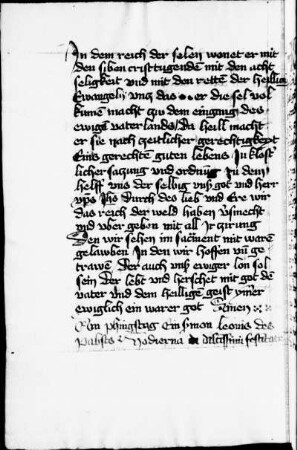 In dem reich der selen wonet er mit
den siben cristtugende mit den acht
seligkeit vnd mit den retten der heilign
Ewangelij vncz das er die sel vol
kumen macht zw dem eingang des
ewigen vaterlands / Zu hell macht
er sie nach zeitlicher gerechtigkeyt
Eins gerechten guten lebens In klost
licher saczung vnd ordnung Zu dem
helff vns der selbig vnser got vnd herr
xps ihs durch des lieb vnd Ere wir
das reich der weld haben vsmecht
vnd vber geben mit all ir zirung
Den wir sehen im sacrment mit ware
gelawben In den wir hoffen vn ge
trawe Der auch vnser ewiger lon sol
sein der lebt vnd herschet mit got de
vater vnd dem heilige geist ymer
ewiglich ein warer got Amen
Am phingstag Ein sermon leonis des
Pabsts Hodierna dilctissimi festitate